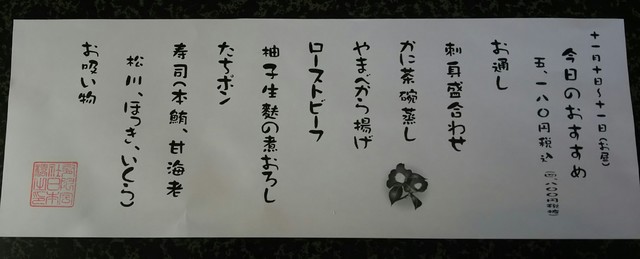 十一月十日〜十一日(お昼)
今日のおすすめ
五、一八〇円税込
お通し
刺身盛合わせ
かに茶碗蒸し
やまべから揚げ
ローストビーフ
柚子生麩の煮おろし
たちポン
寿司(本鮪、甘海老
松川、ほっき、いくら)
お吸い物